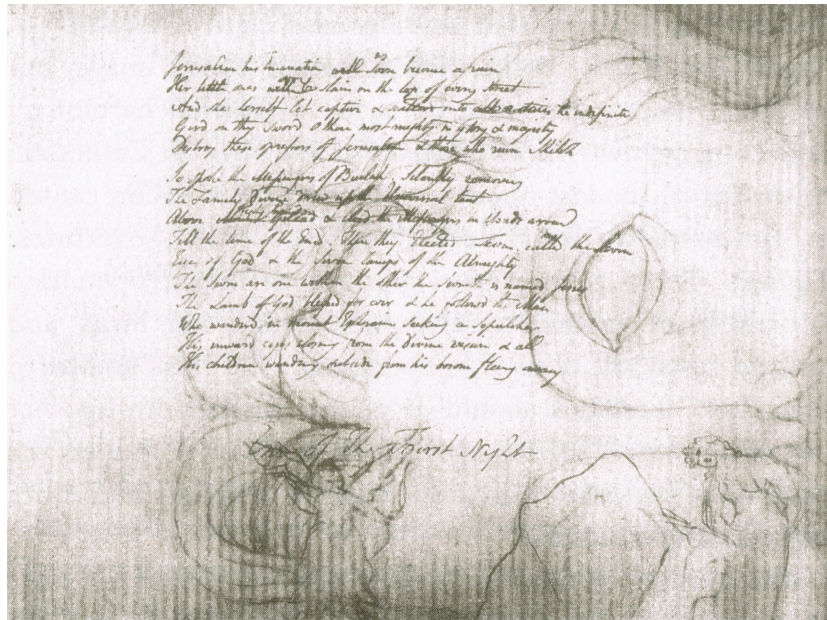 Jerusalem his Emanation will soon become a ruin
Her little ones will be slain on the top of every street
And she herself let captive & scatterd into all nations the indefinite
Gird on thy sword O thou most mighty in glory & majesty
Destroy these opressors of Jerusalem & those who ruin Shiloh
So spoke the Messengers of Beulah. Silently removing
The Family Divine drew up the Universal tent
Above Mount Gilead & closd the Messengers in clouds around
Till the time of the End. Then they Elected Seven. called the Seven
Eyes of God & the Seven lamps of the Almighty
The Seven are one within the other the Seventh is named Jesus
The Lamb of God blessed for ever & he followd the Man
Who wanderd in mount Ephraim seeking a Sepulcher
His inward eyes closing from the Divine vision & all
His children wandering outside from his bosom fleeing away
End of The First Night